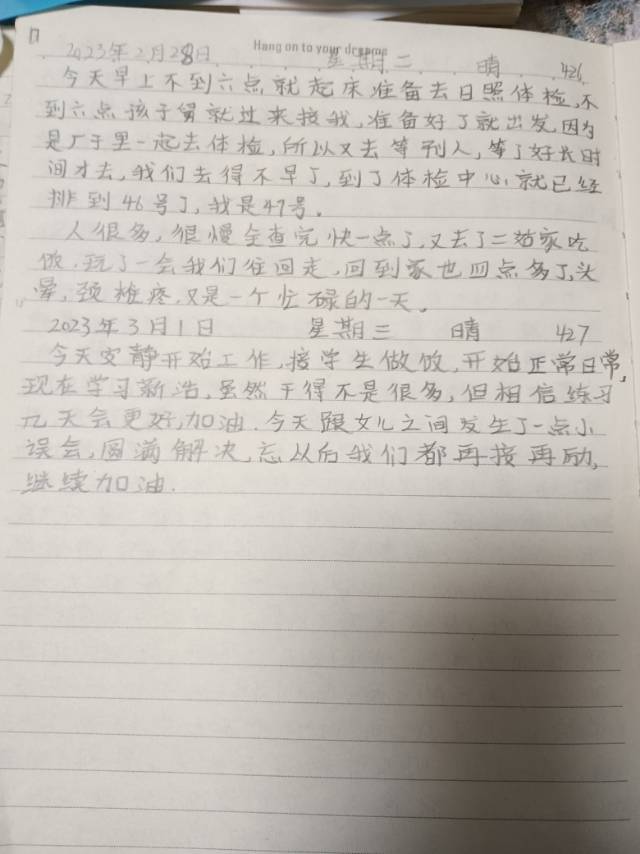 Hang on to your dreams
2023年2月28日 星期二 晴 426
今天早上不到六点就起床准备去日照体检,不
到六点孩子舅就过来接我,准备好了就出发,因为
是厂子里一起去体检,所以又去等别人,等了好长时
间才去,我们去得不早了,到了体检中心就已经
排到46号了,我是47号。
人很多,很慢全查完快一点了,又去了二姑家吃
饭,玩了一会我们往回走,回到家也四点多了,头
晕,颈椎疼,又是一个忙碌的一天。
2023年3月1日 星期三 晴 427
今天安静开始工作,接学生做饭,开始正常日常,
现在学习新浩,虽然干得不是很多,但相信练习
几天会更好,加油.今天跟女儿之间发生了一点小
误会,圆满解决,忘以后我们都再接再励,
继续加油.